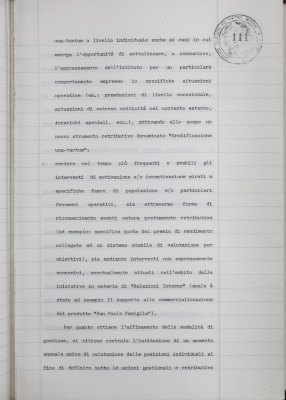 una-tantum a livello individuale anche ai casi in cui
emerga l'opportunità di sottolineare, e comunicare,
l'apprezzamento dell'Istituto per un particolare
comportamento espresso in specifiche situazioni
operative (es.: prestazioni di livello eccezionale,
situazioni di estrema criticità nel contesto esterno,
incarichi speciali, ecc.), attivando allo scopo un
nuovo strumento retributivo denominato "Gratificazione
una-tantum";
- rendere nel tempo più frequenti e stabili gli
interventi di motivazione e/o incentivazione mirati a
specifiche fasce di popolazione e/o particolari
fenomeni operativi, sia attraverso forme di
riconoscimento aventi natura prettamente retributiva
(ad esempio: specifica quota del premio di rendimento
collegata ad un sistema stabile di valutazione per
obiettivi), sia mediante interventi non espressamente
economici, eventualmente attuati nell'ambito delle
iniziative in materia di "Relazioni Interne" (quale è
stato ad esempio il supporto alla commercializzazione
del prodotto "San Paolo Famiglia").
Per quanto attiene l'affinamento delle modalità di
gestione, si ritiene centrale l'istituzione di un momento
annuale unico di valutazione delle posizioni individuali al
fine di definire tutte le azioni gestionali e retributive
111